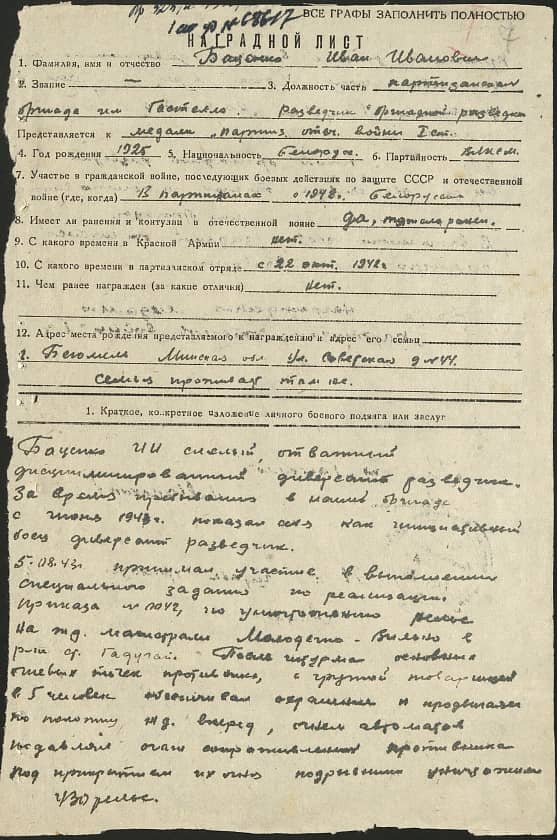 1 шт ф N 68617 ВСЕ ГРАФЫ ЗАПОЛНИТЬ ПОЛНОСТЬЮ
НАГРАДНОЙ ЛИСТ
1. Фамилия, имя и отчество Баценко Иван Иванович
2. Звание — 3. Должность часть партизанская
бригада им Гастелло. разведчик бригадной разведки
Представляется к медали „партиз. отеч. войны I ст.
4. Год рождения 1925 5. Национальность белорус. 6. Партийность ВЛКСМ.
7. Участье в гражданской войне, последующих боевых действиях по защите СССР и отечественной
войне (где, когда) В партизанах с 1942г. Белоруссия
8. Имеет ли ранения и контузии в отечественной войне да, тяжело ранен.
9. С какого времени в Красной Армии нет.
10. С какого времени в партизанском отряде с 22 окт. 1942г
11. Чем ранее награжден (за какие отличия) нет.
12. Адрес места рождения представляемого к награждению и адрес его семьи
г. Бегомль Минская обл ул. Советская д N 44.
семья проживает там же.
1. Краткое, конкретное изложение личного боевого подвига или заслуг
Баценко ИИ смелый, отважный
дисциплинированный диверсант разведчик.
За время пребывания в нашей бригаде
с июня 1943г. показал себя как инициативный
боец диверсант разведчик.
5.08.43г. принимал участие в выполнении
специального задания по реализации
приказа N 0042, по уничтожению рельс
на жд. магистрали Молодечно - Вильно в
р-не ст. Гадутай. После штурма основных
огневых точек противника, с группой товарищей
в 5 человек обеспечивал охранения и продвигаясь
по полотну жд. вперед, огнем автоматов
подавляя очаги сопротивления противника
под прикрытием их огня подрывники уничтожили
рельс.